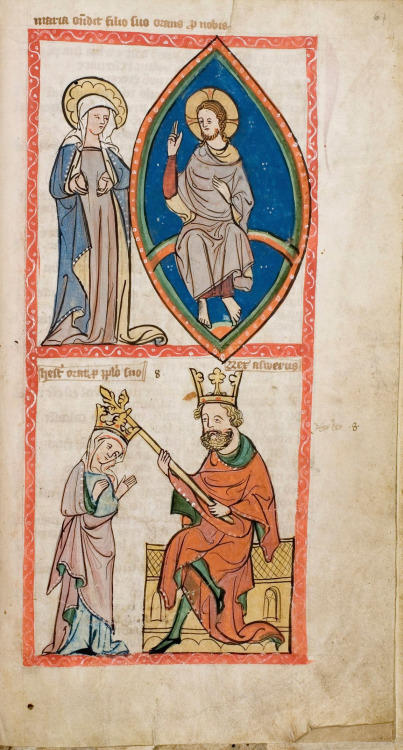 maria on̄dit filio suo orans ꝓ nobis.
hest' orat ꝓ pp̄lo suo 8
Rex aswerus
8